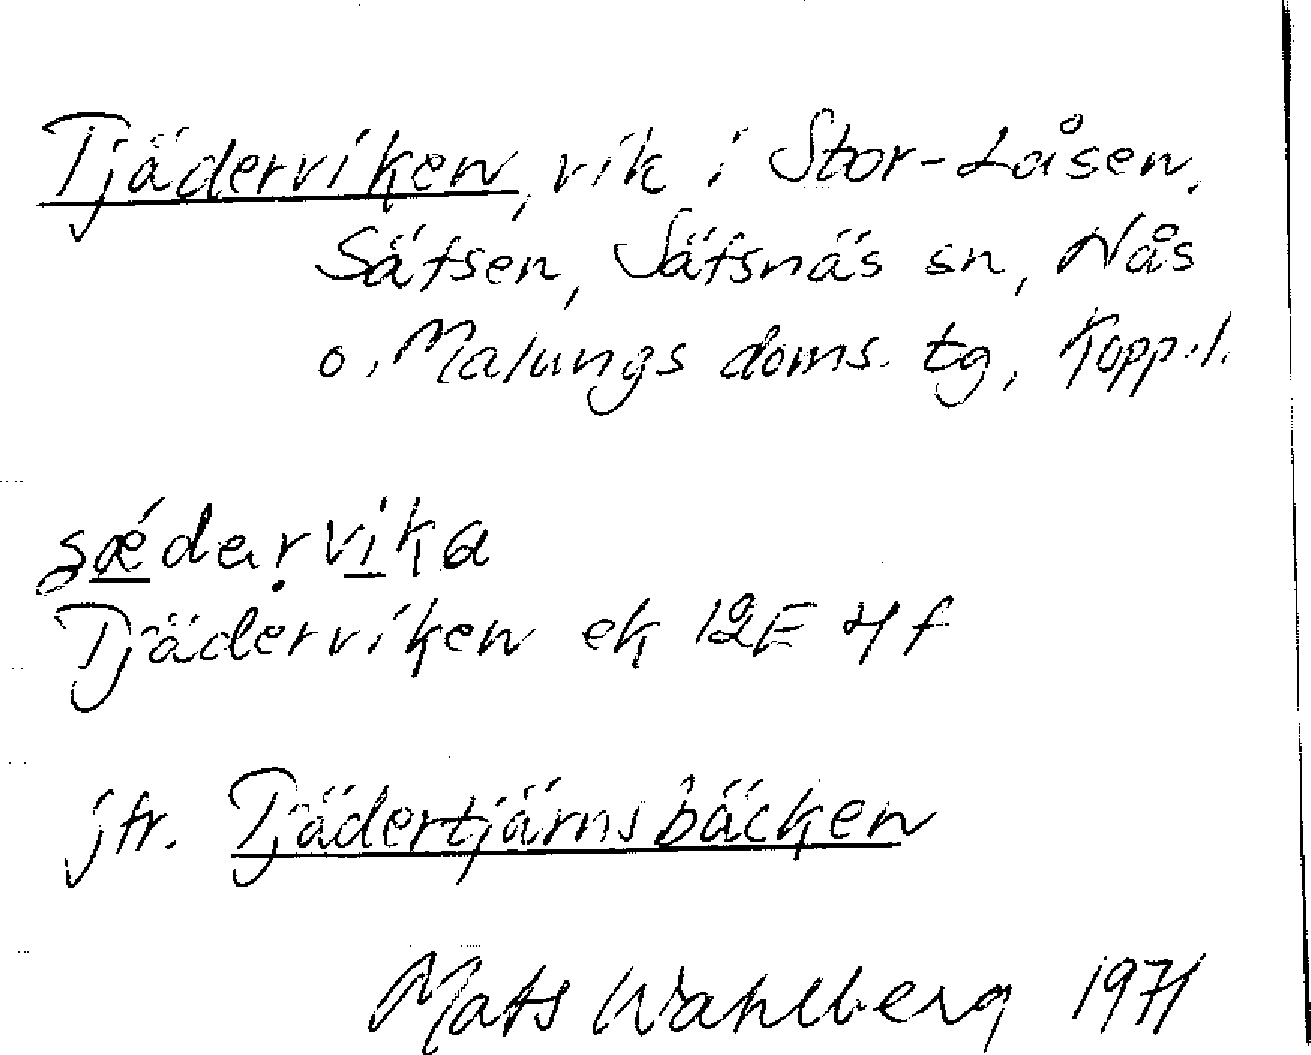 Tjäderviken, vik i Stor-Låsen,
Sätsen, Sätsnäs sn, Nås
o. Malungs doms. tg, Kopp.l.
Tjäderviken ek 12E 4f
jfr. Tjädertjärnsbäcken
Mats Wahlberg 1971